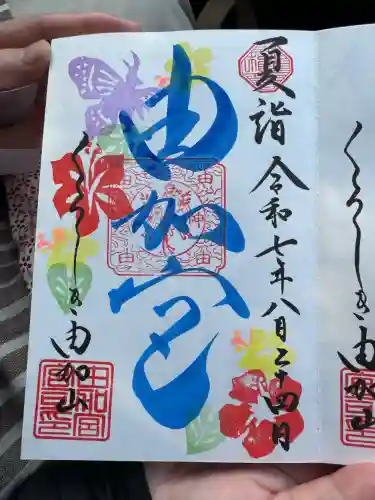 夏詣 令和七年八月二十四日
由加宮
くらしき 由加山
くらしき 由加山